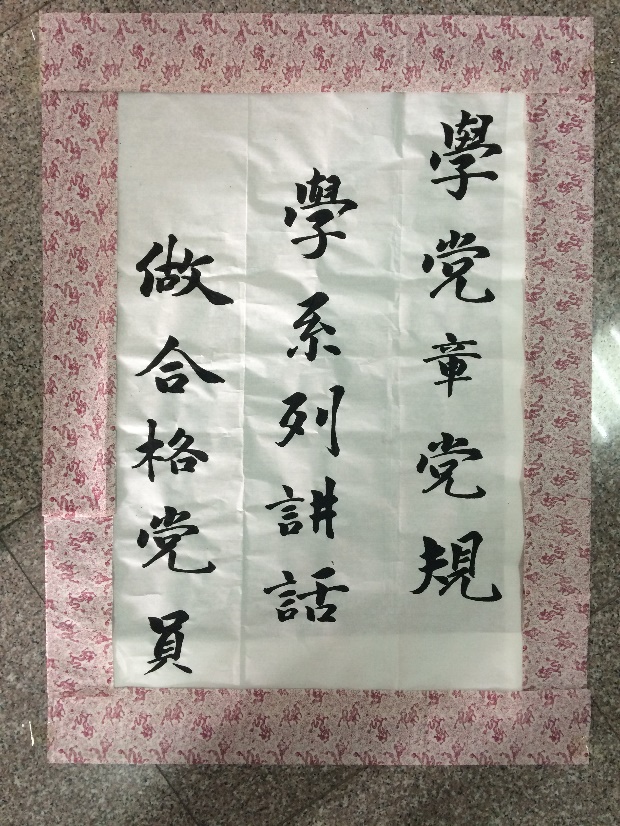 學党章党規
學系列訲話
做合格党員